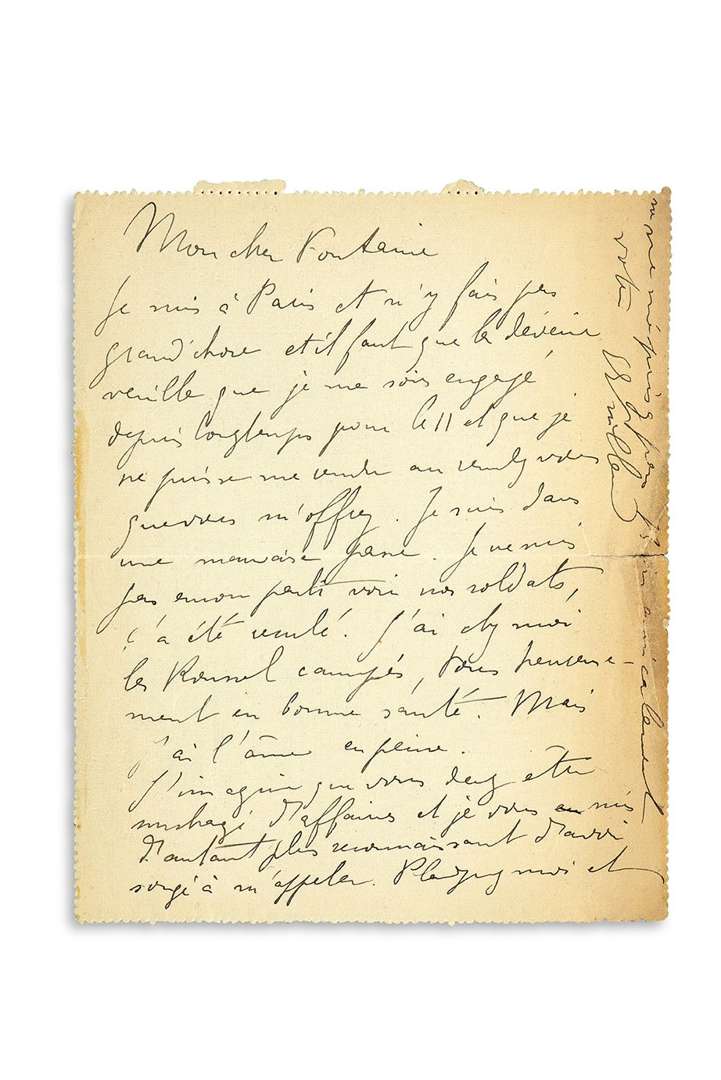 Mon cher Fontaine
Je suis à Paris et n'y fais pas
grand'chose et il faut que la déveine
veuille que je me sois engagé
depuis longtemps pour le 11 et que je
ne puisse me rendre au rendez vous
que vous m'offrez. Je suis dans
une mauvaise passe. Je ne suis
pas encore parti voir nos soldats,
ç'a été reculé. J'ai chez moi
les Roussel campés, tous heureuse-
ment en bonne santé. Mais
j'ai l'âme en peine.
J'imagine que vous devez être
surchargé d'affaires et je vous en suis
d'autant plus reconnaissant d'avoir
songé à m'appeler. Plaignez moi et
ne me méprisez pas. Bien amicalement
votre
E Vuillard